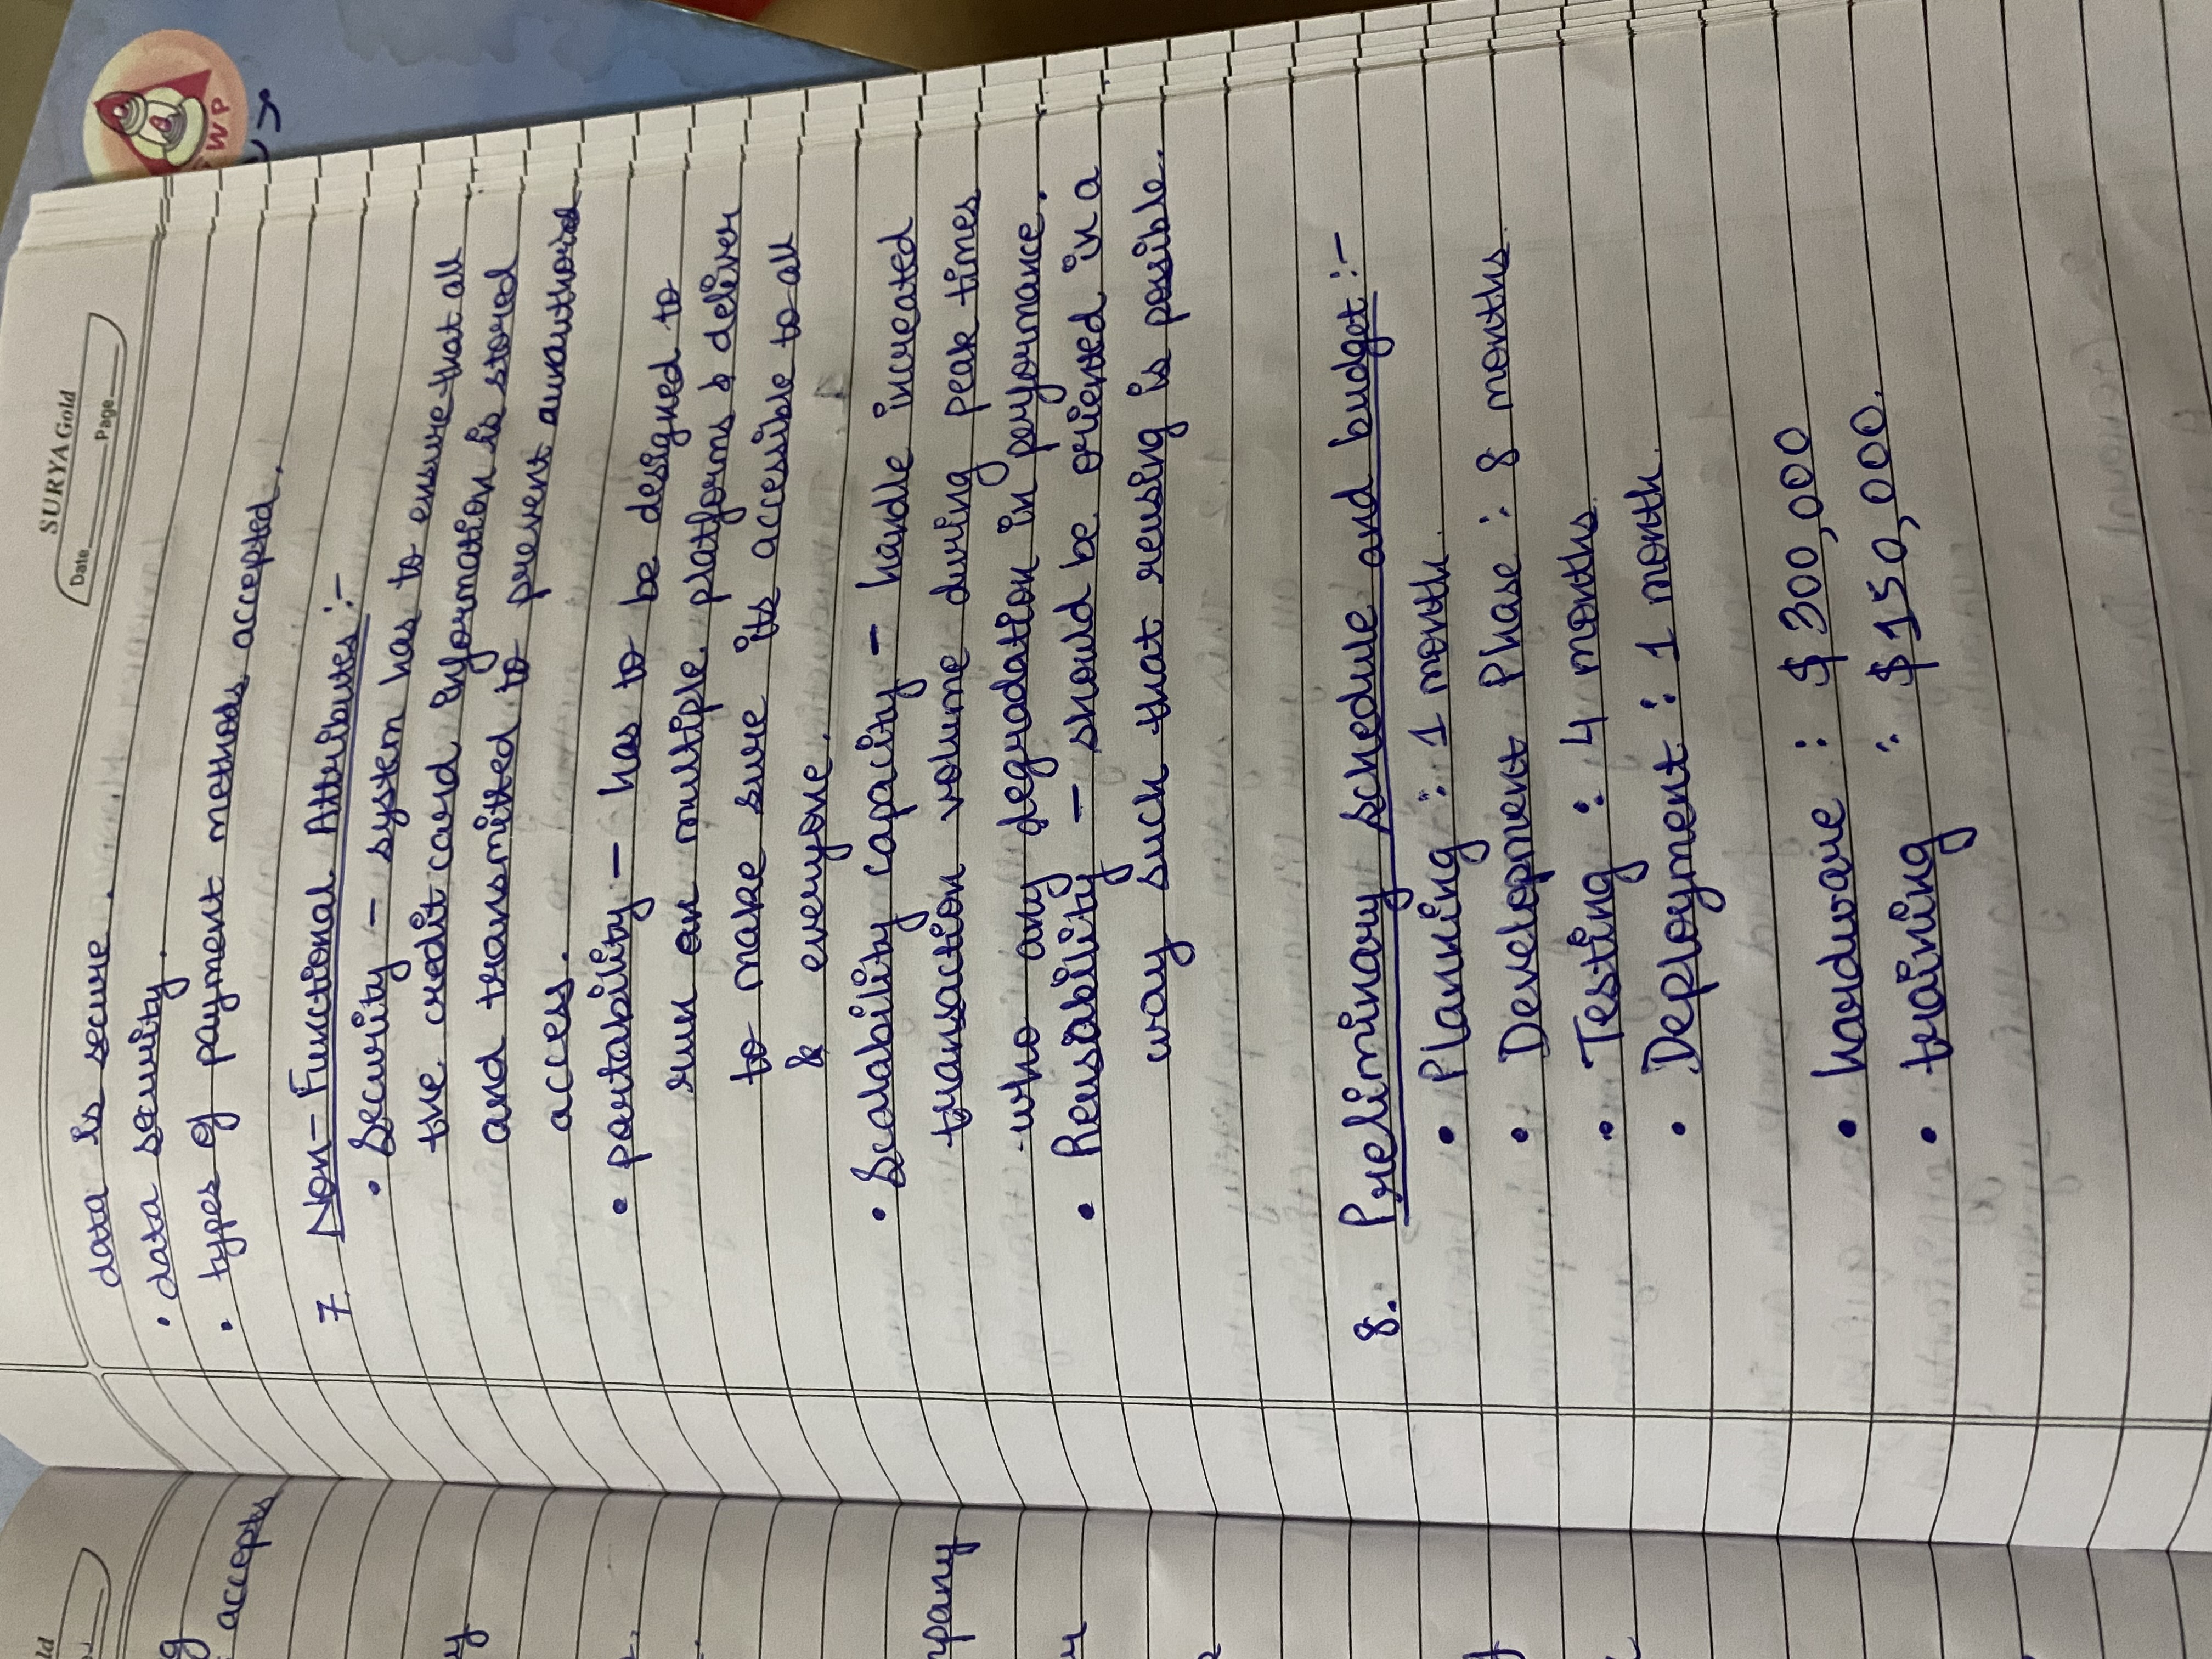 SURYA Gold
Date Page
data is secure.
• data security.
• types of payment methods accepted.
7. Non-Functional Attributes :-
• Security - system has to ensure that all
the credit card information is stored
and transmitted to prevent
access.
• portability - has to be designed to
run on multiple platforms & deliver
to make sure its accessible to all
& everyone.
• Scalability capacity - handle increated
transaction volume during peak times
who any degradation in performance.
• Reusability - should be oriented in a
way such that reusing is possible.
8. Preliminary schedule and budget :-
• Planning : 1 month.
• Development Phase : 8 months.
• Testing : 4 months.
• Deployment : 1 month.
• hardware : $300,000
• training : $150,000.
accepts